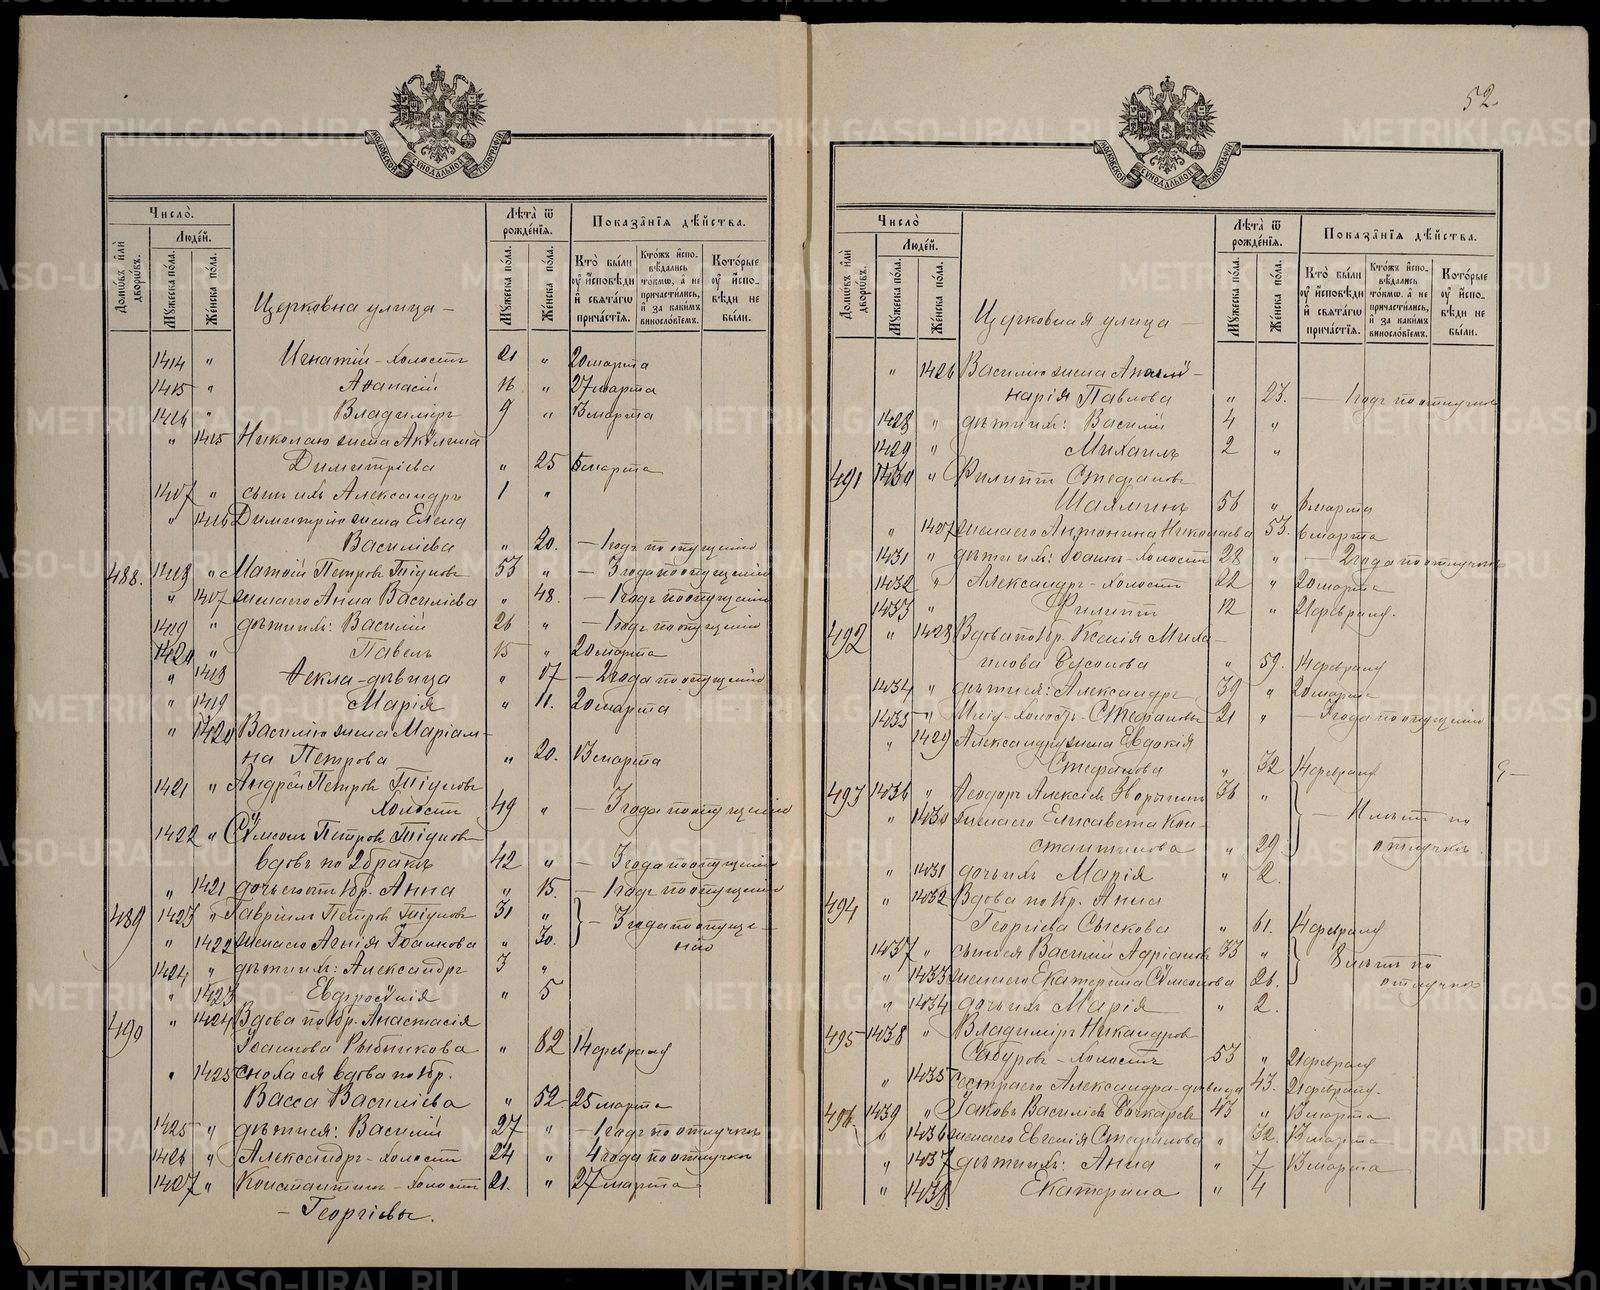 52
МОСКОВСКОЙ СѴНОДАЛЬНОЙ ТИПОГРАФІИ
Число̀.
Люде́й.
Домѡ́въ и҆лѝ дворѡ́въ.
Мꙋжеска по́ла.
Же́нска по́ла.
Церковна улица —
Лѣ́та ѿ рожде́нїѧ.
Мꙋжеска по́ла.
Же́нска по́ла.
Показа̑нїѧ дѣ́йства.
Кто̀ бы́ли ᲂу҆ и҆сповѣди и҆ свѧта́гѡ прича́стїѧ.
Кто́жъ и҆спо-вѣдались то́кмѡ, а҆ не причастились, и҆ за каки́мъ виносло́вїемъ.
Кото́рые ᲂу҆ и҆спо-вѣди не бы́ли.
1414 „ Игнатій - холостъ 21 „ 20 марта
1415 „ Аѳанасій 16 „ 27 марта
1416 „ Владиміръ 9 „ 13 марта
„ 1415 Николаю жена Акулина
Димитріева „ 25 6 марта
1417 „ сынъ ихъ Александръ 1 „
„ 1416 Димитрію жена Елена
Василіева „ 20. — 1 годъ по опущенію
488. 1418 „ Матѳій Петровъ 53 „ — 3 года по опущенію
„ 1417 жена его Анна Василіева „ 48. — 1 годъ по опущенію
1419 „ дѣти ихъ: Василій 26 „ — 1 годъ по опущенію
1420 „ Павелъ 15 „ 20 марта
„ 1418 Ѳекла - дѣвица „ 17 — 2 года по опущенію
„ 1419 Марія „ 11. 20 марта
„ 1420 Василію жена Маріам-
на Петрова „ 20. 13 марта
1421 „ Андрей Петровъ
холостъ 49 „ — 3 года по опущенію
1422 „ Сѵмеонъ Петровъ
вдовъ по 2 бракѣ 42 „ — 3 года по опущенію
„ 1421 дочь его отъ 1 бр. Анна „ 15. — 1 годъ по опущенію
489 1423 „ Гавріилъ Петровъ 31 „ — 3 года по опуще-
„ 1422 жена его Агнія Іоаннова „ 30. нію
1424 „ дѣти ихъ: Александръ 3 „
„ 1423 Евфросинія „ 5
490 „ 1424 Вдова по 1 бр. Анастасія
Іоаннова Рыбникова „ 82 14 февраля
„ 1425 сноха ея вдова по 1 бр.
Васса Василіева „ 52. 25 марта
1425 „ дѣти ея: Василій 27 „ — 1 годъ по отлучкѣ
1426 „ Александръ - холостъ 24 „ 4 года по отлучкѣ
1427 „ Константинъ - холостъ 21. „ 27 марта
— Георгіевы.
МОСКОВСКОЙ СѴНОДАЛЬНОЙ ТИПОГРАФІИ
Число̀
Люде́й.
Домѡ́въ и҆лѝ дворѡ́въ.
Мꙋжеска по́ла.
Же́нска по́ла.
Церковная улица —
Лѣ́та ѿ рожде́нїѧ.
Мꙋжеска по́ла.
Же́нска по́ла.
Показа̑нїѧ дѣ́йства.
Кто̀ бы́ли ᲂу҆ и҆сповѣди и҆ свѧта́гѡ прича́стїѧ.
Кто́жъ и҆спо-вѣдались то́кмѡ, а҆ не причастились, и҆ за каки́мъ виносло́вїемъ.
Кото́рые ᲂу҆ и҆спо-вѣди не бы́ли.
„ 1426 Василію жена Аполли-
нарія Павлова „ 23. — 1 годъ по отлучкѣ
1428 „ дѣти ихъ: Василій 4 „
1429 „ Михаилъ 2 „
491 1430 „ Филиппъ Стефановъ
Шалминъ 56 „ 6 марта
„ 1427 жена его Антонина Николаева 53. 6 марта
1431 „ дѣти ихъ: Іоаннъ - холостъ 28 „ — 2 года по отлучкѣ
1432 „ Александръ - холостъ 22 „ 20 марта
1433 „ Филиппъ 12 „ 21 февраля.
492 „ 1428 Вдова по 1 бр. Ксенія Миха-
илова „ 59. 14 февраля
1434 „ дѣти ея: Александръ 39 „ 20 марта
1435 „ холостъ - Стефановы 21 „ — 3 года по опущенію
„ 1429 Александру жена Евдокія
Стефанова „ 32 14 февраля
493 1436 „ Ѳеодоръ Алексіевъ Зворыгинъ 36 „ — 11 лѣтъ по
„ 1430 жена его Елисавета Кон-
стантинова „ 29. отлучкѣ
„ 1431 дочь ихъ Марія „ 2.
494 „ 1432 Вдова по 1 бр. Анна
Георгіева Сыскова „ 61. 14 февраля
1437 „ сынъ ея Василій Адріановъ 33 „ 8 лѣтъ по
„ 1433 жена его Екатерина Сѵмеонова 26. отлучкѣ
„ 1434 дочь ихъ Марія „ 2.
495 1438 „ Владиміръ Никандровъ
Сабуровъ - холостъ 53 „ 21 февраля
„ 1435 сестра его Александра - дѣвица 43. 21 февраля.
496. 1439 „ Іаковъ Василіевъ Бочкаревъ 43 „ 13 марта
„ 1436 жена его Евгенія Стефанова „ 32. 13 марта
„ 1437 дѣти ихъ: Анна „ 7 13 марта
„ 1438 Екатерина „ 4
METRIKI.GASO-URAL.RU